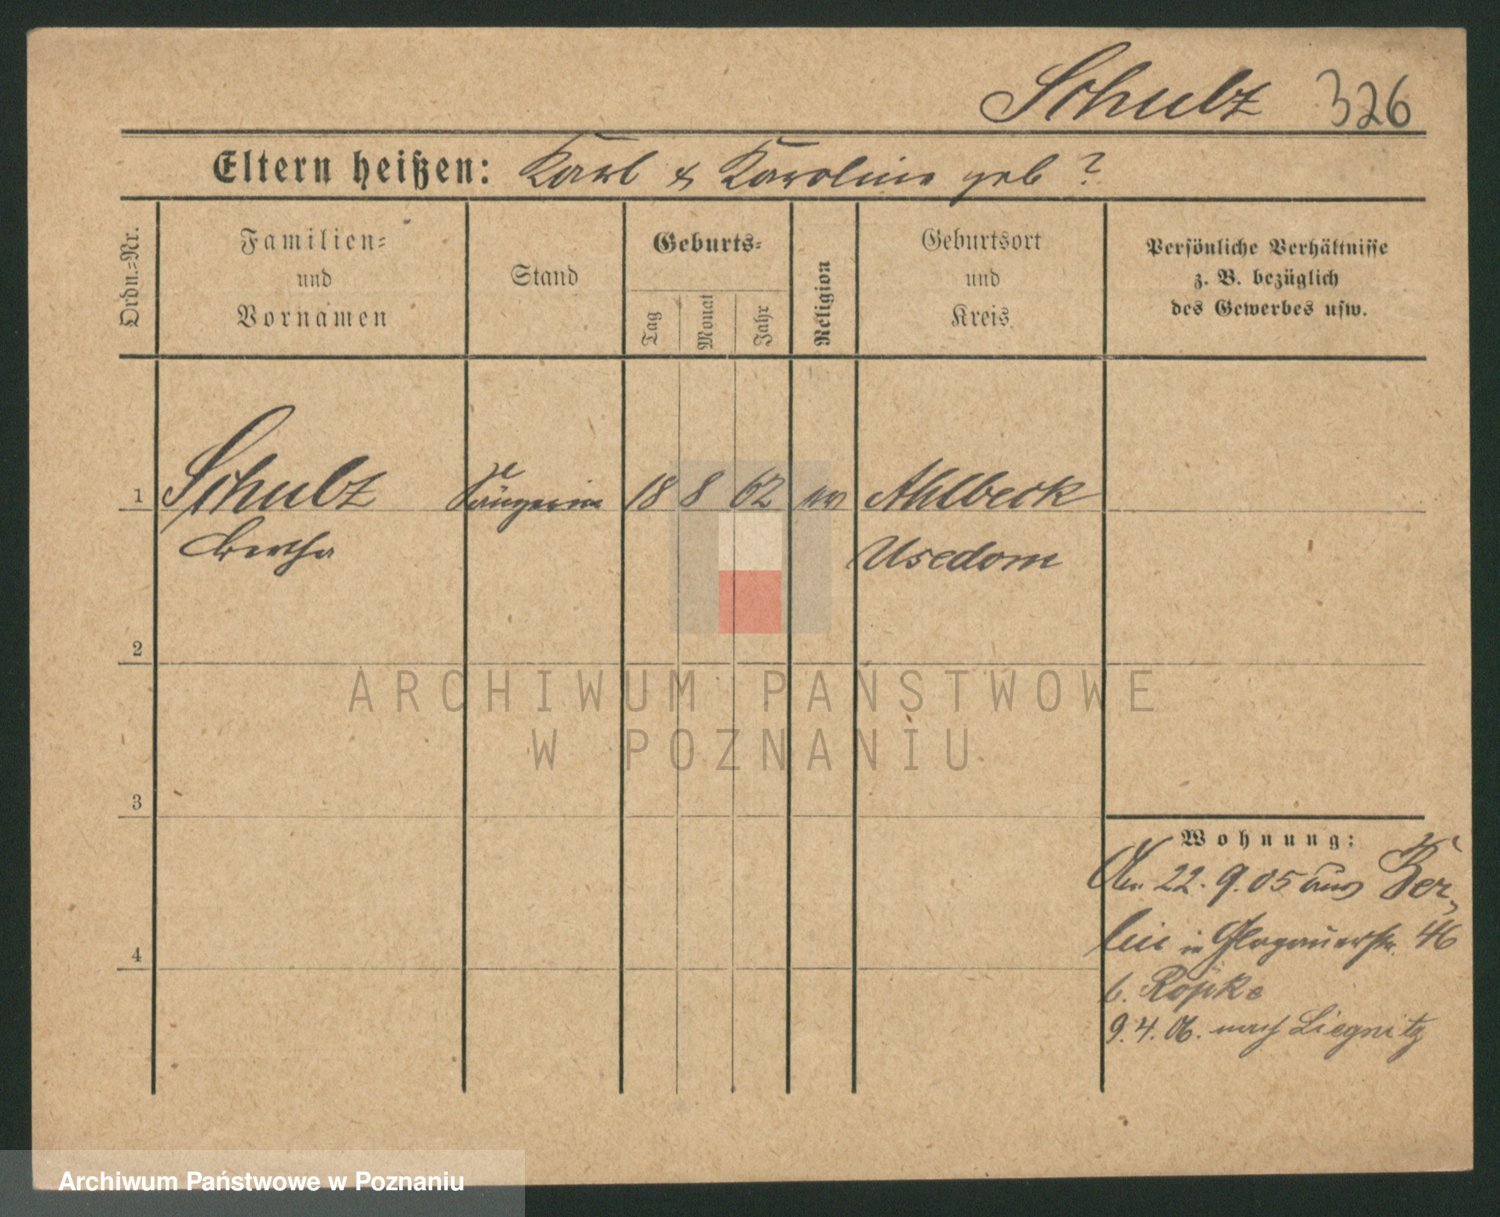 Schulz 326
Eltern heißen: Karl & Karoline geb ?
Ordn.=Nr.
Familien=
und
Vornamen
Stand
Geburts=
Tag
Monat
Jahr
Religion
Geburtsort
und
Kreis
Persönliche Verhältnisse
z. B. bezüglich
des Gewerbes usw.
1 Schulz Sängerin 18 8 62 ev Ahlbeck
Bertha Usedom
2
ARCHIWUM PAŃSTWOWE
W POZNANIU
3
Wohnung:
22. 9. 05 aus Ber-
lin in Glogauerstr. 46
b. Röpke
9. 4. 06. nach Liegnitz
4
Archiwum Państwowe w Poznaniu